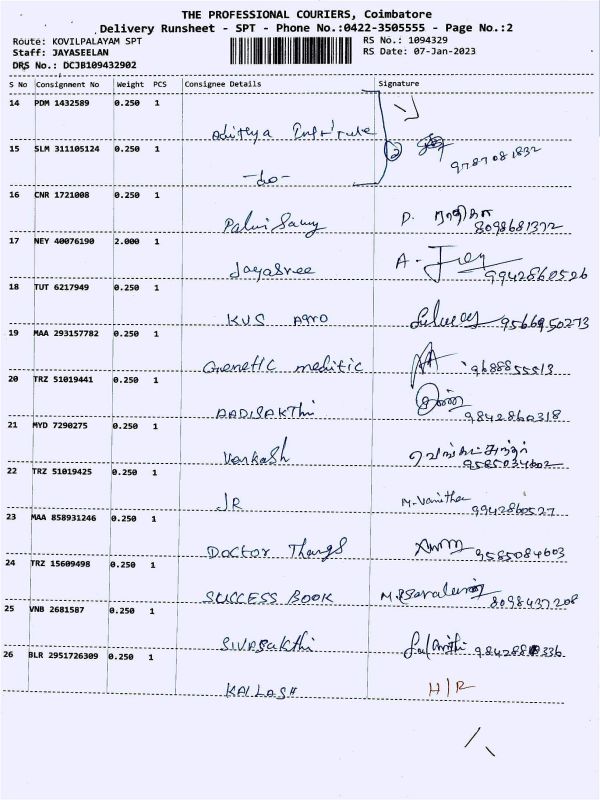 THE PROFESSIONAL COURIERS, Coimbatore
Delivery Runsheet - SPT - Phone No.:0422-3505555 - Page No.:2
Route: KOVILPALAYAM SPT
RS No.: 1094329
Staff: JAYASEELAN
RS Date: 07-Jan-2023
DRS No.: DCJB109432902
S No Consignment No Weight PCS Consignee Details Signature
14 PDM 1432589 0.250 1
Adithya Institute
15 SLM 311105124 0.250 1
② 9787081832
-do-
16 CNR 1721008 0.250 1
Palni Samy D. 8098681372
17 NEY 40076190 2.000 1
Jayasree A- 9942860526
18 TUT 6217949 0.250 1
KUS Agro 9566950273
19 MAA 293157782 0.250 1
Genetic meditic 9688855513
20 TRZ 51019441 0.250 1
AADISAKThi 9842860318
21 MYD 7290275 0.250 1
Venkash 9585034602
22 TRZ 51019425 0.250 1
JR M. Vanitha 9942860527
23 MAA 858931246 0.250 1
Doctor 9585084603
24 TRZ 15609498 0.250 1
SUCCESS BOOK 8098437208
25 VNB 2681587 0.250 1
SIVASakthi
26 BLR 2951726309 0.250 1
KAILASH H/R